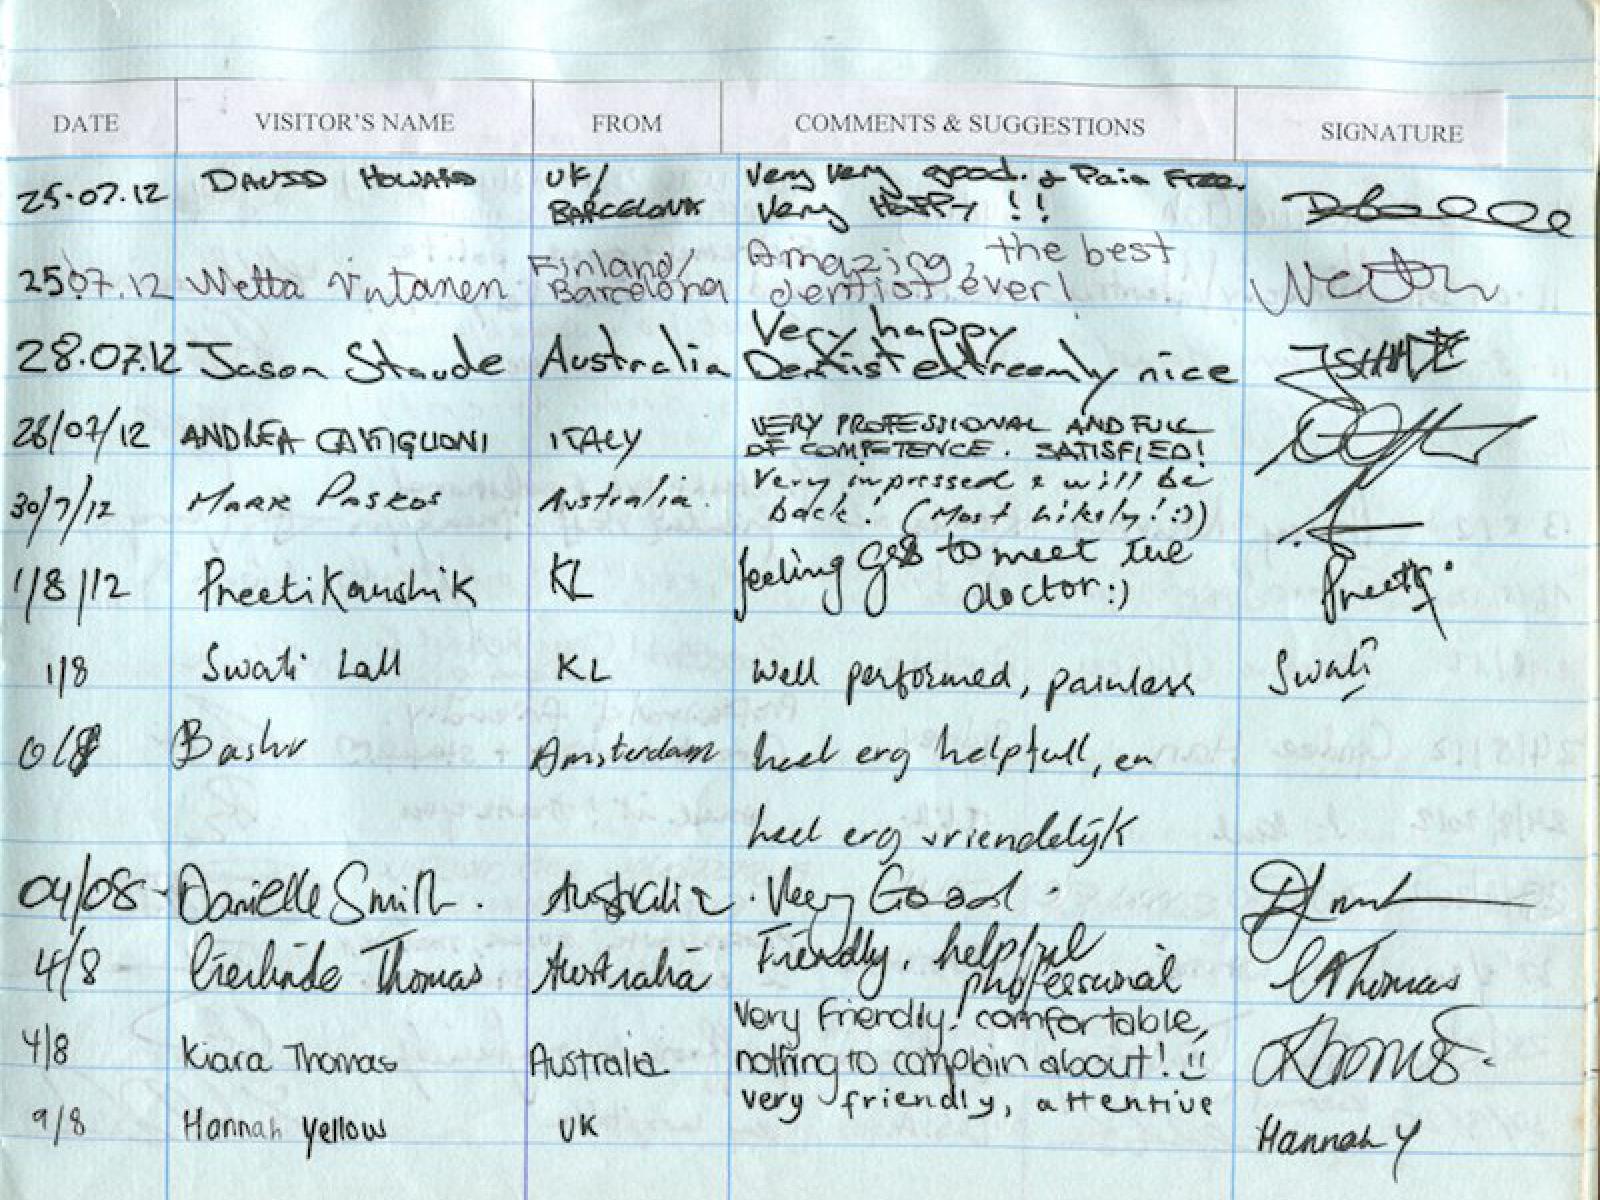 DATE VISITOR'S NAME FROM COMMENTS & SUGGESTIONS SIGNATURE
25.07.12 DAVID HOWARD UK/ Very very good. & Pain Free.
BARCELONA Very HAPPY !!
25.07.12 Netta Virtanen Finland/ Amazing, the best
Barcelona dentist ever!
Very happy
28.07.12 Jason Staude Australia Dentist extreemly nice
28/07/12 ANDREA CAVIGLIONI ITALY VERY PROFESSIONAL AND FULL
OF COMPETENCE. SATISFIED!
30/7/12 Mark Paskos Australia. Very impressed & will be
back! (Most likely! :))
1/8/12 Preeti Kaushik KL feeling gd to meet the Preeti
doctor :)
1/8 Swati Lall KL Well performed, painless Swati
Bashir Amsterdam heel erg helpfull, en
heel erg vriendelijk
04/08 Danielle Smith. Australia. Very Good
4/8 Gerlinde Thomas Australia Friendly, helpful GThomas
professional
Very Friendly! comfortable,
4/8 Kiara Thomas Australia nothing to complain about!
very friendly, attentive
9/8 Hannah Yellow UK Hannah Y